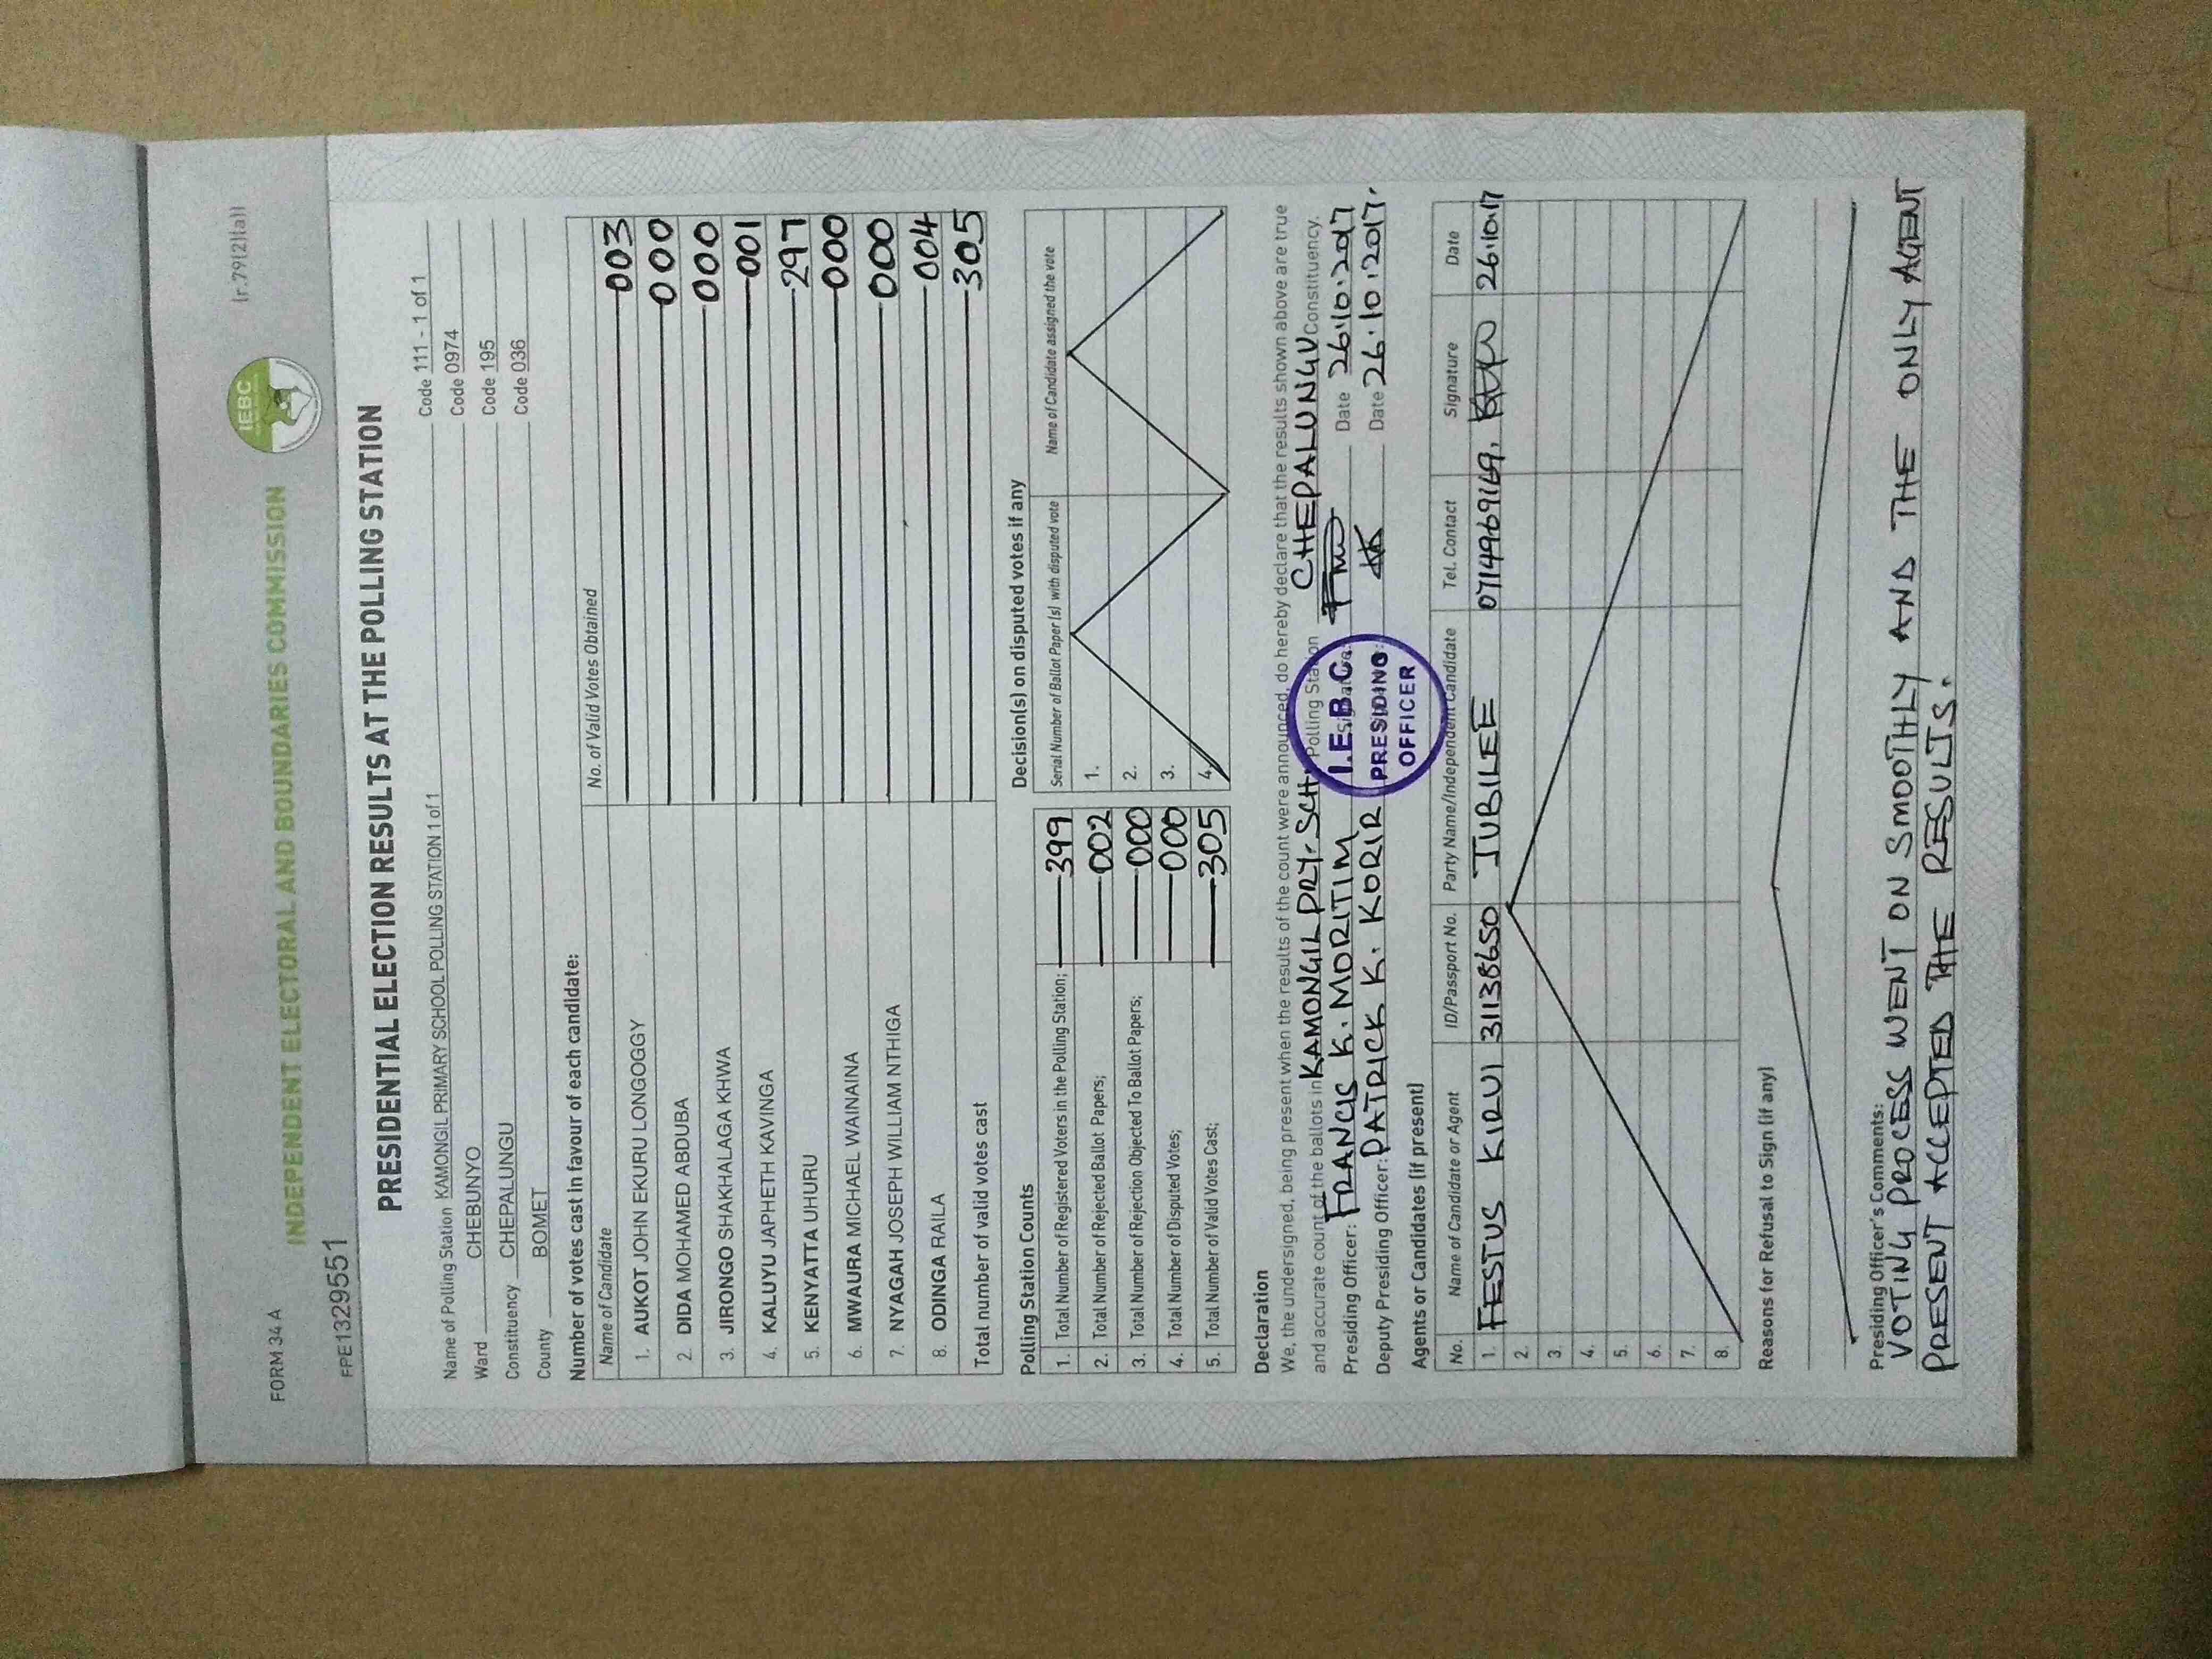 FORM 34 A
INDEPENDENT ELECTORAL AND BOUNDARIES COMMISSION
IEBC
(r.79(2)(a))
FPE1329551
PRESIDENTIAL ELECTION RESULTS AT THE POLLING STATION
Name of Polling Station KAMONGIL PRIMARY SCHOOL POLLING STATION 1 of 1 Code 111 - 1 of 1
Ward CHEBUNYO Code 0974
Constituency CHEPALUNGU Code 195
County BOMET Code 036
Number of votes cast in favour of each candidate:
Name of Candidate No. of Valid Votes Obtained
1. AUKOT JOHN EKURU LONGOGGY 003
2. DIDA MOHAMED ABDUBA 000
3. JIRONGO SHAKHALAGA KHWA 000
4. KALUYU JAPHETH KAVINGA 001
5. KENYATTA UHURU 297
6. MWAURA MICHAEL WAINAINA 000
7. NYAGAH JOSEPH WILLIAM NTHIGA 000
8. ODINGA RAILA 004
Total number of valid votes cast 305
Polling Station Counts
1. Total Number of Registered Voters in the Polling Station; 399
2. Total Number of Rejected Ballot Papers; 002
3. Total Number of Rejection Objected To Ballot Papers; 000
4. Total Number of Disputed Votes; 000
5. Total Number of Valid Votes Cast; 305
Decision(s) on disputed votes if any
Serial Number of Ballot Paper (s) with disputed vote Name of Candidate assigned the vote
1.
2.
3.
4.
Declaration
We, the undersigned, being present when the results of the count were announced, do hereby declare that the results shown above are true
and accurate count of the ballots in KAMONGIL PRY. SCH. Polling Station CHEPALUNGU Constituency.
Presiding Officer: FRANCIS K. MORITIM Date 26.10.2017
Deputy Presiding Officer: PATRICK K. KORIR Date 26.10.2017.
I.E.B.C.
PRESIDING
OFFICER
Agents or Candidates (if present)
No. Name of Candidate or Agent ID/Passport No. Party Name/Independent Candidate Tel. Contact Signature Date
1. FESTUS KIRUI 31138650 JUBILEE 0714969169. 26.10.17
2.
3.
4.
5.
6.
7.
8.
Reasons for Refusal to Sign (if any)
Presiding Officer's Comments:
VOTING PROCESS WENT ON SMOOTHLY AND THE ONLY AGENT
PRESENT ACCEPTED THE RESULTS.